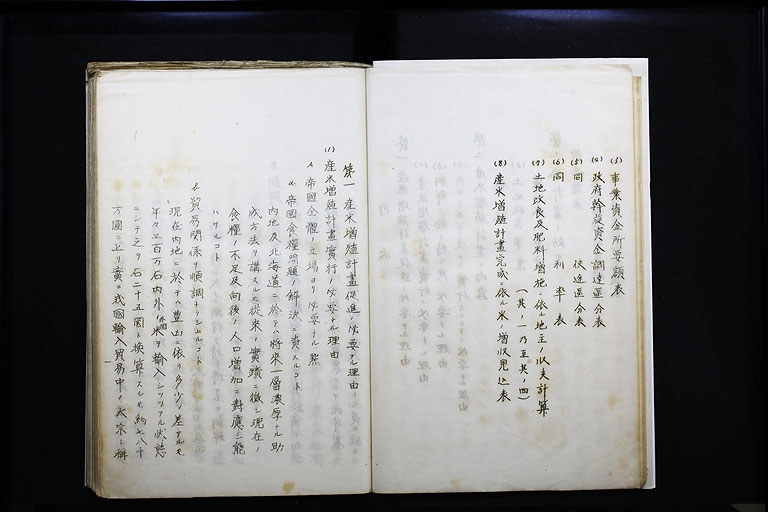 (3) 事業資金所要額表
(4) 政府斡旋資金調達區分表
(5) 同 仕途區分表
(6) 同 利率表
(7) 土地改良及肥料増施ニ依ル地主ノ收支計算
(其ノ一乃至其ノ四)
(8) 産米増殖計畫完成ニ依ル米ノ増收見込表
第一 産米増殖計畫促進ノ必要ナル理由
(1) 産米増殖計畫實行ノ必要ナル理由
A 帝國全體ノ立場ヨリ必要ナル點
a 帝國食糧問題ノ解決ニ資スルコト
内地及北海道ニ於テハ將來一層濃厚ナル助
成方法ヲ講スルモ從來ノ實蹟ニ徴シ現在ノ
食糧ノ不足及向後ノ人口増加ニ對應シ能
ハサルコト
b 貿易関係ヲ順調ナラシムルコト
現在内地ニ於テハ豊凶ニ依リ多少ノ差アルモ
年々三百万石内外ノ外國米ヲ輸入シツツアル狀態
ニシテ之ヲ石二十五圓ト換算スルモ約七八千
万圓ニ上リ實ニ我國輸入貿易中ノ大宗ト稱